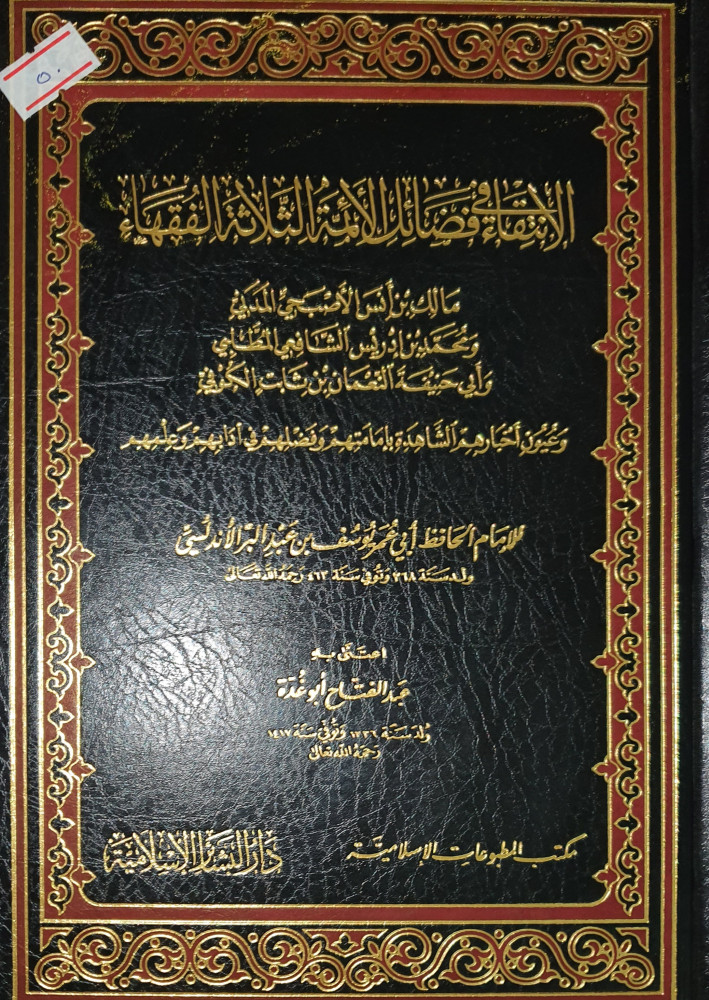 ٥٠
الانتقاء في فضائل الأئمة الثلاثة الفقهاء
مَالِك بن أنس الأصبحي المدني
وَمُحَمَّد بن إدريس الشافعي المطلبي
وَأبي حنيفة النعمان بن ثابت الكوفي
وَعُيُون أخبارهم الشاهدة بإمامتهم وفضلهم في آدابهم وعلمهم
للإمام الحافظ أبي عمر يوسف بن عبد البر الأندلسي
ولد سنة ٣٦٨ وتوفي سنة ٤٦٣ رحمه الله تعالى
اعتنى به
عبد الفتاح أبو غدة
ولد سنة ١٣٣٦ وتوفي سنة ١٤١٧
رحمه الله تعالى
مكتب المطبوعات الإسلامية
دار البشائر الإسلامية